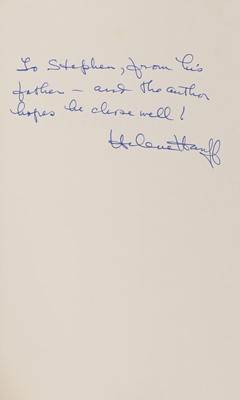 To Stephen, from his
father — and the author
hopes he chose well!
Helene Hanff